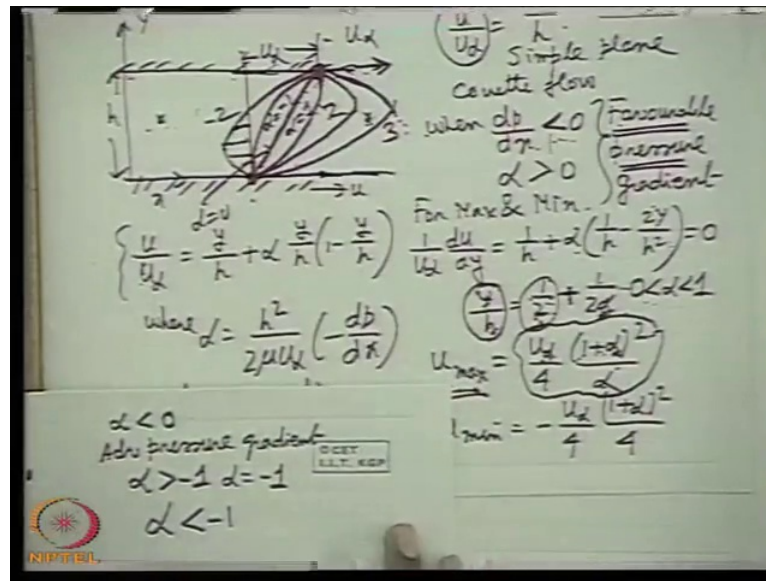 y
U∞
U∞
h
-2
2
3
x
u
α=0
{ u/U∞ = y/h + α y/h (1 - y/h)
where α = h²/2μU∞ (-dp/dx)
u/U∞ = y/h.
Simple plane
Couette flow
when dp/dx < 0 } Favourable
α > 0 pressure
gradient
For Max & Min.
1/U∞ du/dy = 1/h + α(1/h - 2y/h²) = 0
y/h = 1/2 + 1/2α 0<α<1
u max = U∞/4 (1+α)²/α
min = - U∞/4 (1+α)²/4
α < 0
Adv. pressure gradient
α > -1 α = -1
α < -1
©CET
I.I.T. KGP
NPTEL